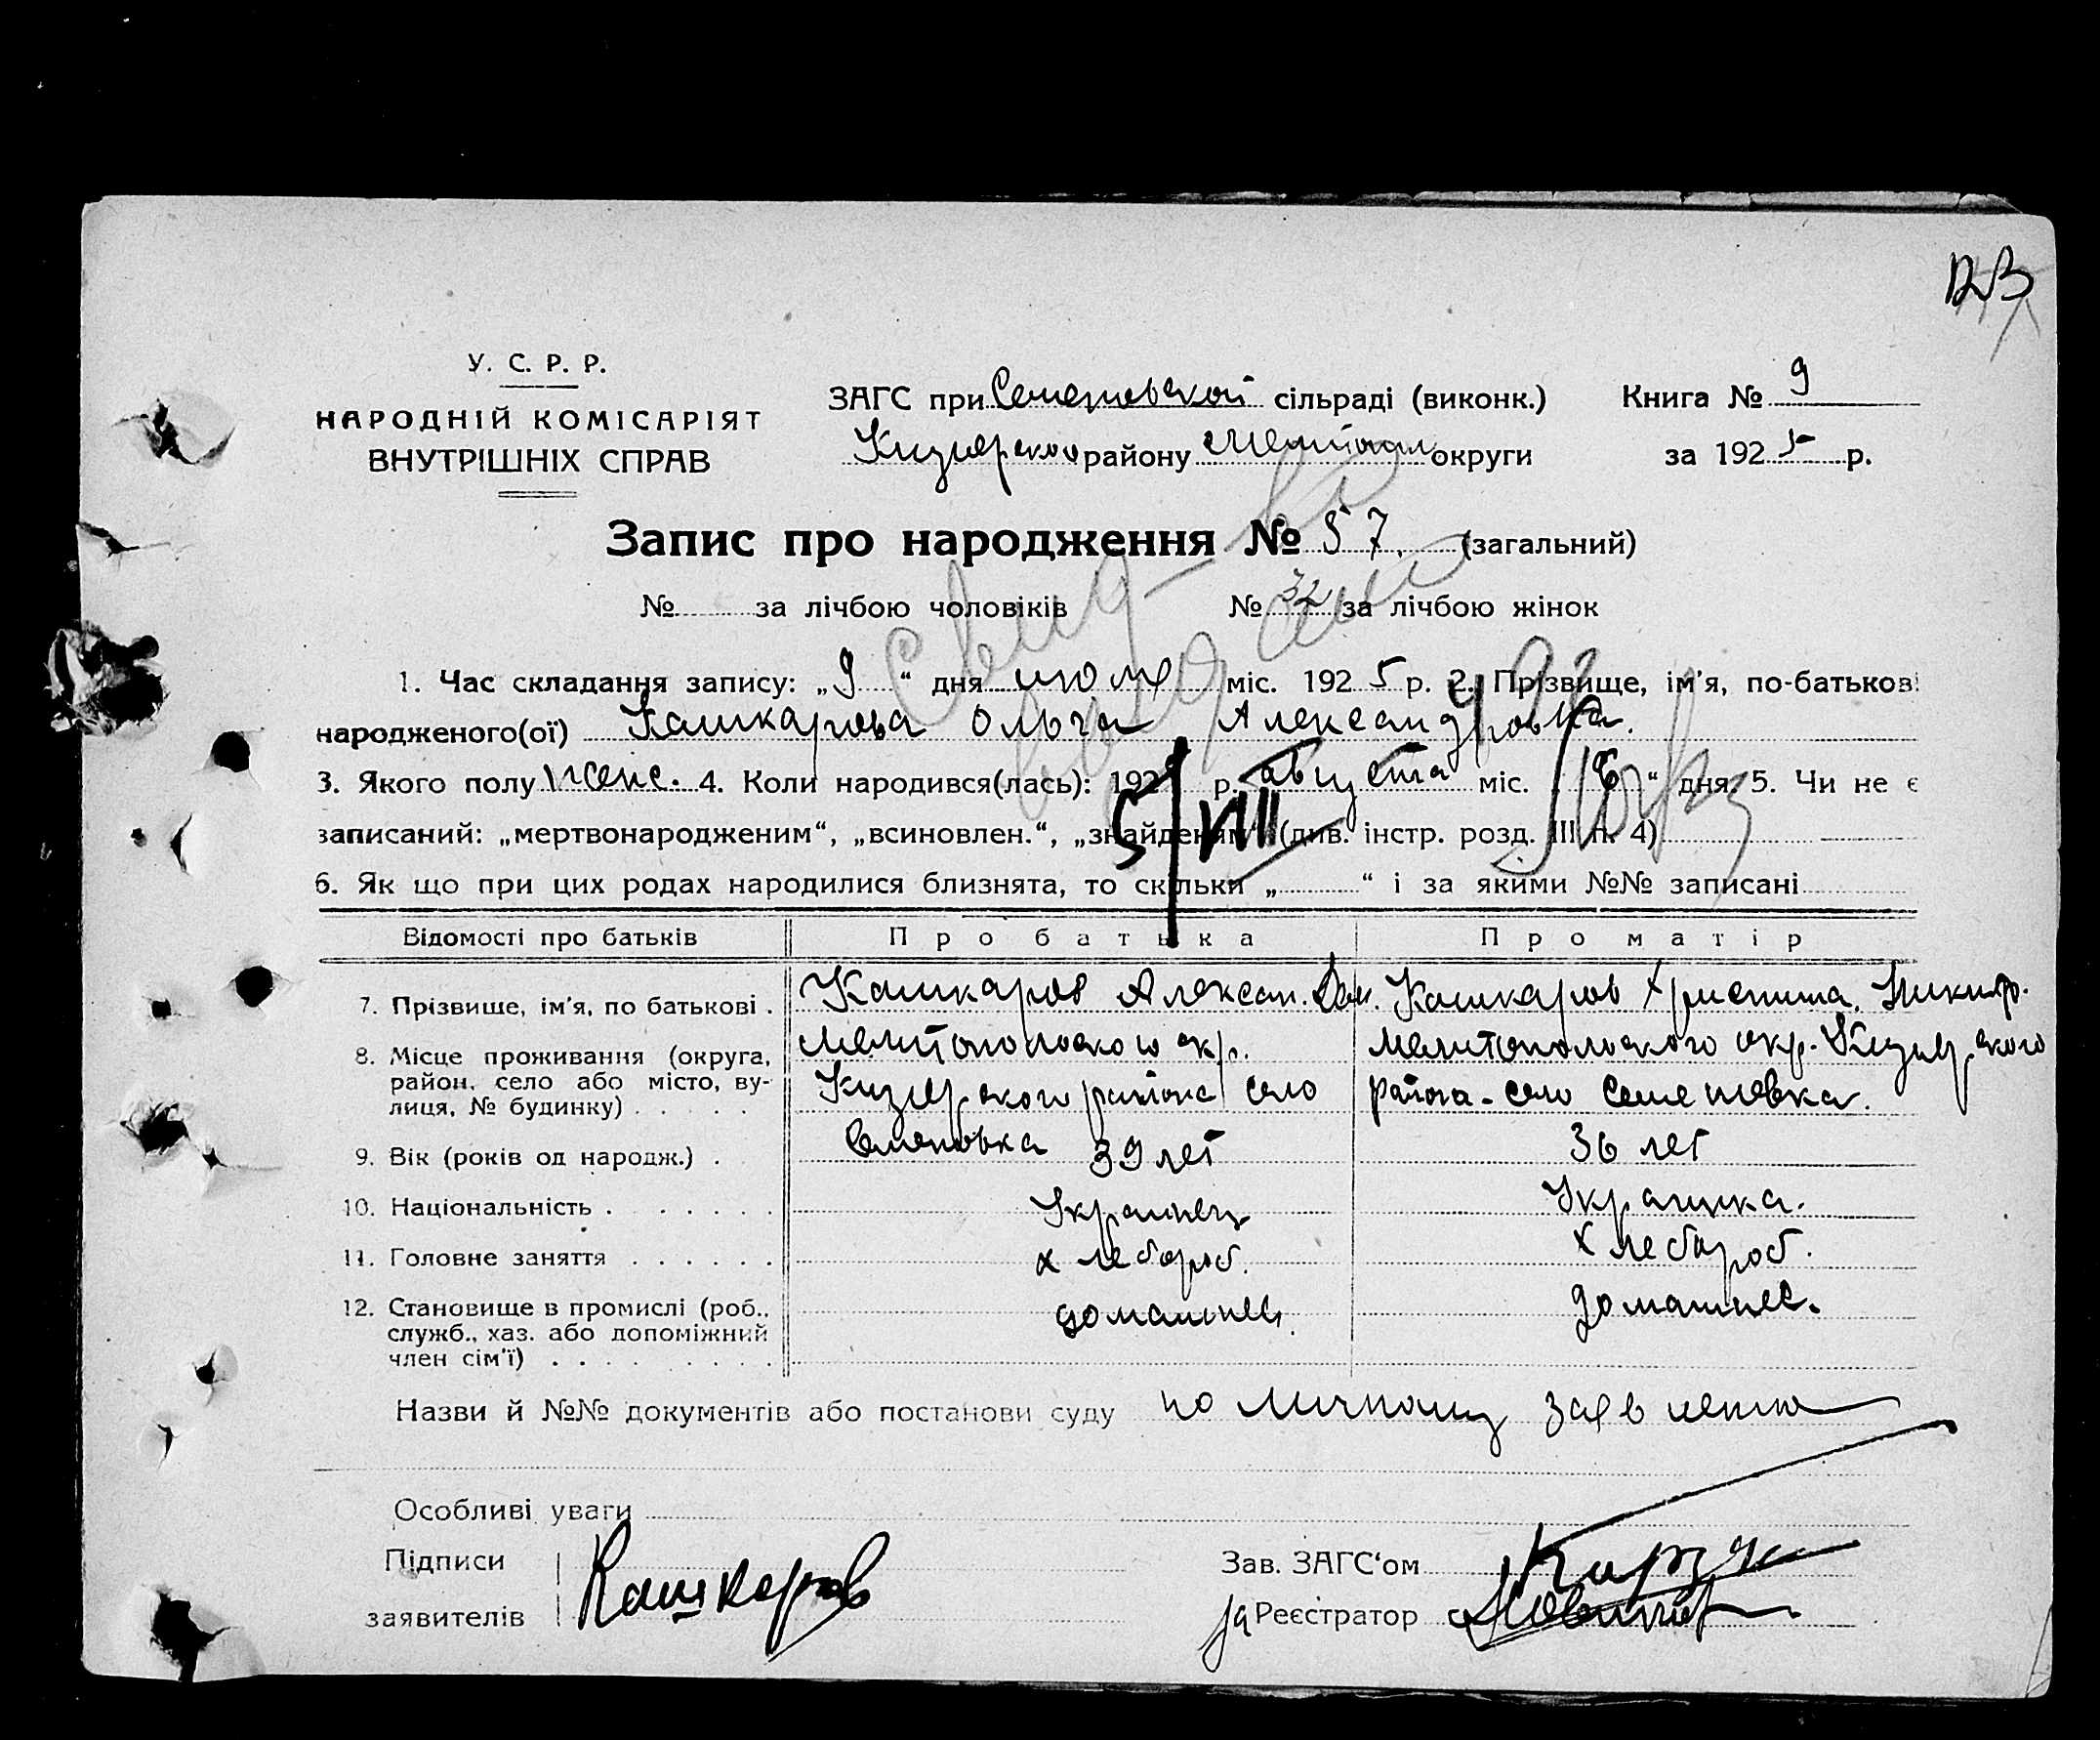 У. С. Р. Р.
НАРОДНІЙ КОМІСАРІЯТ
ВНУТРІШНІХ СПРАВ
ЗАГС при Семеновской сільраді (виконк.) Книга № 9
Кизиярского району Мелитопол округи за 1925 р.
Запис про народження № 57. (загальний)
№ за лічбою чоловіків № 32 за лічбою жінок
1. Час складання запису: „9“ дня июля міс. 1925 р. 2. Прізвище, ім'я, по-батькові
народженого(ої) Кашкарова Ольга Александровна.
3. Якого полу женс. 4. Коли народився(лась): 192 р. августа міс. “ дня. 5. Чи не є
записаний: „мертвонародженим“, „всиновлен.“, „знайденим“ (див. інстр. розд. III п. 4)
5/VIII
6. Як що при цих родах народилися близнята, то скільки „ “ і за якими №№ записані
Відомості про батьків Про батька Про матір
7. Прізвище, ім'я, по батькові . Кашкаров Алексан. Кашкаров Христина. Никиф.
8. Місце проживання (округа, район, село або місто, вулиця, № будинку) . . . . Мелитопольского окр. Кизиярского района село Семеновка Мелитопольского окр. Кизиярского района - село Семеновка.
9. Вік (років од народж.) . 39 лет 36 лет
10. Національність . . . . . . . Украинец Украинка.
11. Головне заняття . . . . . . хлебороб. хлебороб.
12. Становище в промислі (роб., служб., хаз. або допоміжний член сім'ї) . . . . . . . . . домашнее. домашнее.
Назви й №№ документів або постанови суду по личному заявлению
Особливі уваги
Підписи заявителів Кашкаров
Зав. ЗАГС‘ом
Реєстратор